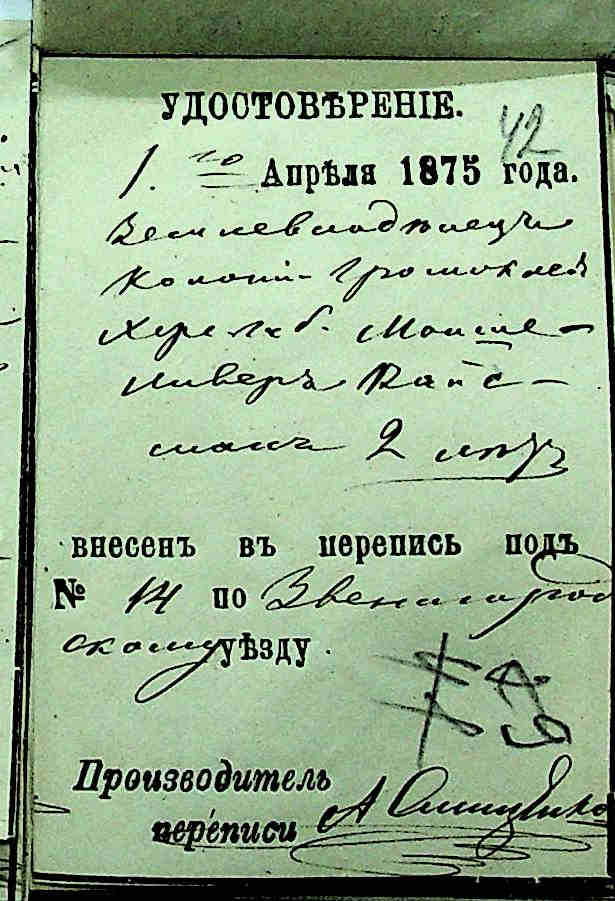 УДОСТОВѢРЕНІЕ.
42
1.го Апрѣля 1875 года.
Землевладѣлецъ
Колоніи Громоклей
Херс. губ. Мойше-
Ливеръ Вайс-
манъ 2 лѣтъ
внесенъ въ перепись подъ
№ 14 по Звенигород
скому уѣзду.
Производитель
переписи А